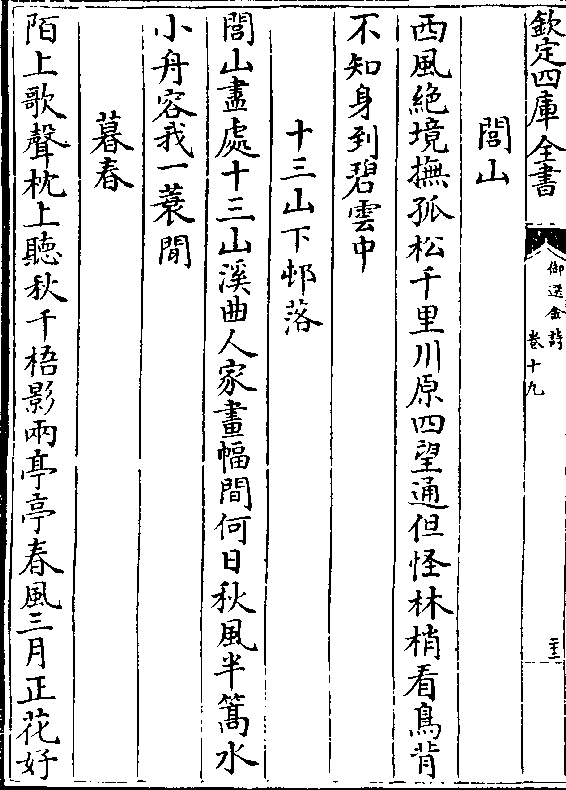 欽定四庫全書
御選金詩
卷十九
閭山
西風絶境撫孤松千里川原四望通但怪林梢看鳥背
不知身到碧雲中
十三山下邨落
閭山盡處十三山溪曲人家畫幅間何日秋風半篙水
小舟容我一蓑閒
暮春
陌上歌聲枕上聽秋千梧影兩亭亭春風三月正花好